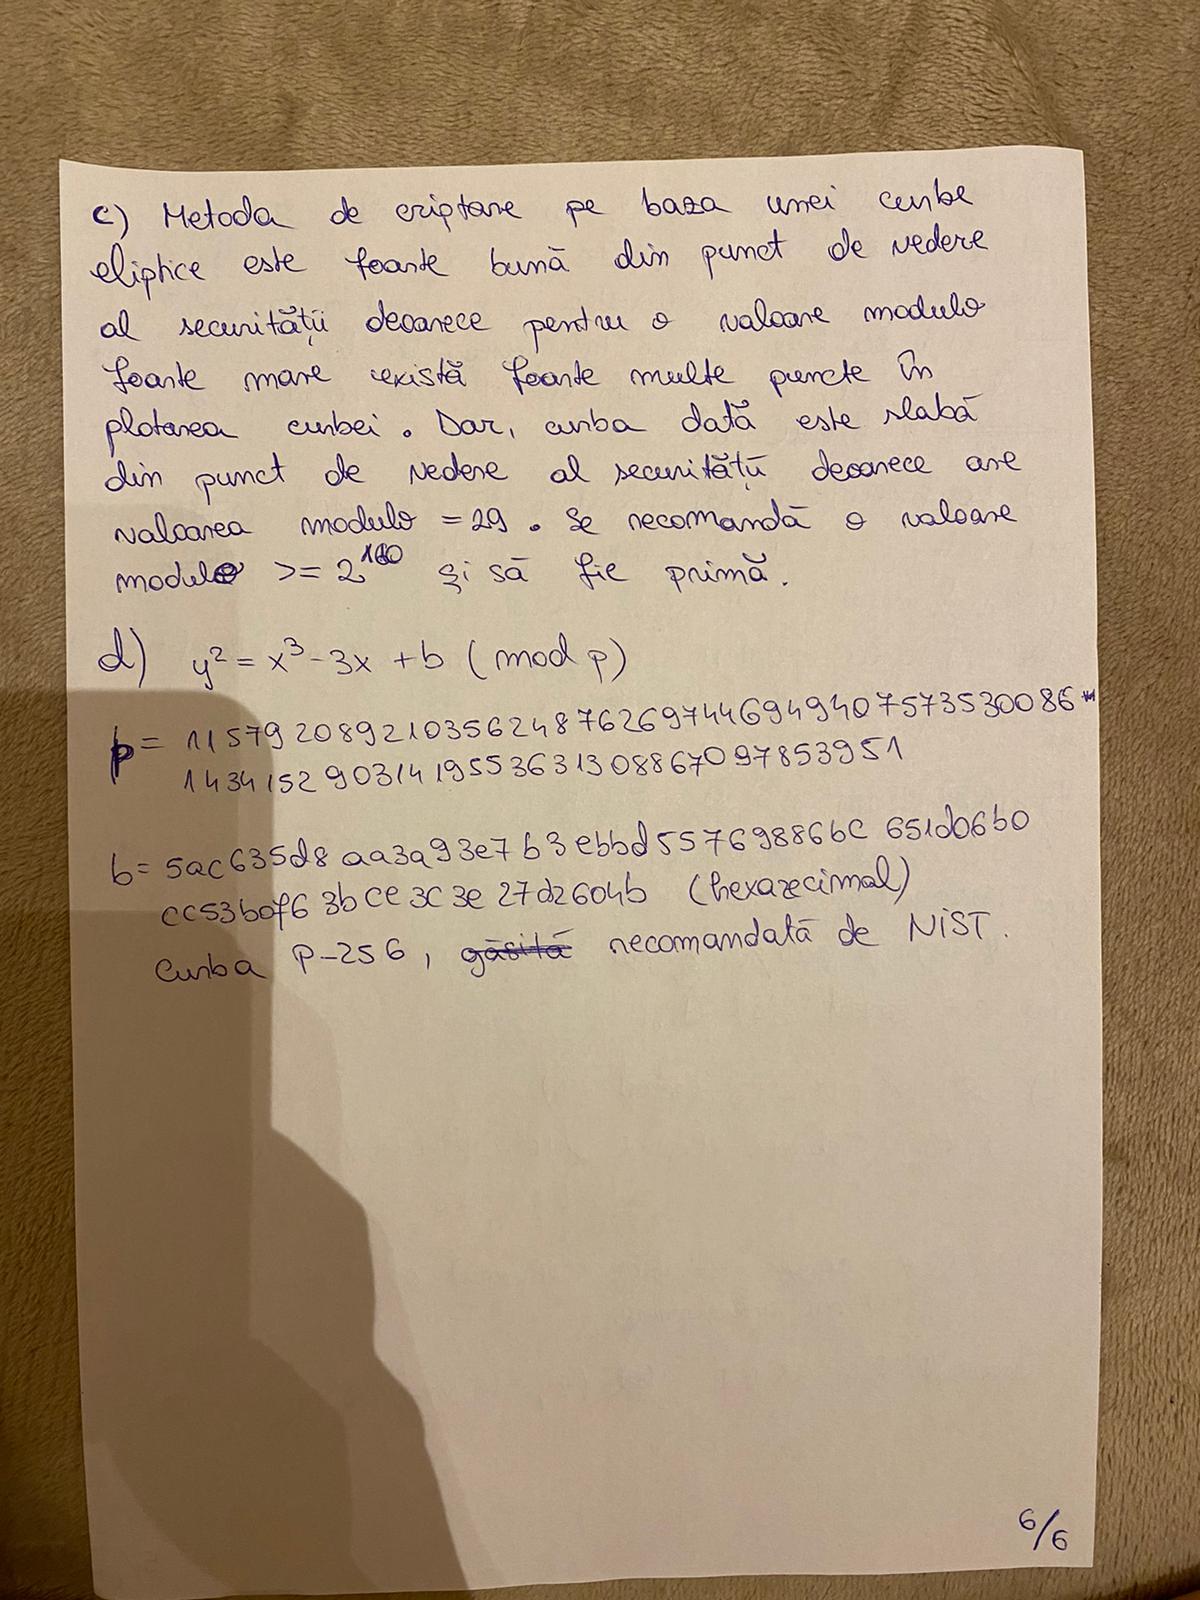 c) Metoda de criptare pe baza unei curbe
eliptice este foarte bună din punct de vedere
al securității deoarece pentru o valoare modulo
foarte mare există foarte multe puncte în
plotarea curbei. Dar, curba dată este slabă
din punct de vedere al securității deoarece are
valoarea modulo = 29. Se recomandă o valoare
modulo >= 2^160 și să fie primă.
d) y² = x³ - 3x + b (mod p)
p = 115792089210356248762697446949407573530086
14341529031419553631308867097853951
b = 5ac635d8 aa3a93e7 b3ebbd55769886bc 651d06b0
cc53b0f6 3bce3c3e 27d2604b (hexazecimal)
Curba P-256, găsită recomandată de NIST.
6/6